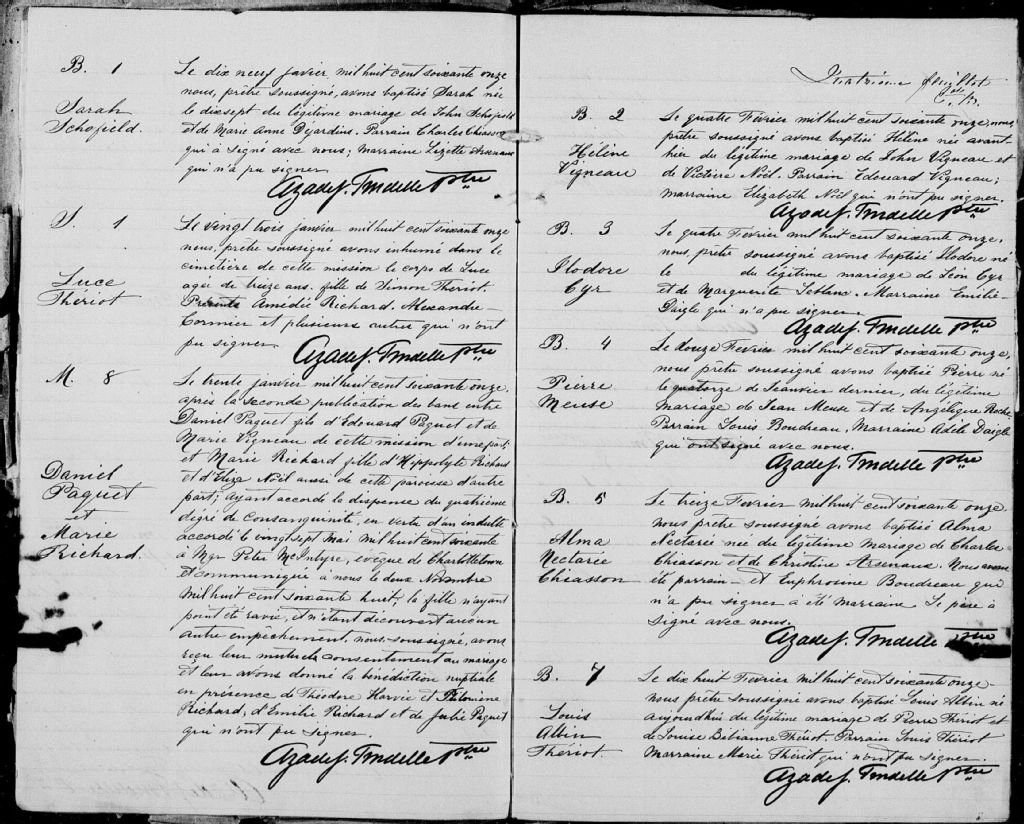 B. 1
Sarah
Schofield.
Le dix neuf javier mil huit cent soixante onze
nous, prêtre soussigné, avons baptisé Sarah née
le dixsept du légitime mariage de John Schofield
et de Marie Anne Dejardins. Parrain Charles Chiasson
qui à signé avec nous; marraine Lizette Arsenaux
qui n'a pu signer
Azade J. Trudelle Ptre
S. 1
Luce
Thériot.
Le vingt trois janvier mil huit cent soixante onze
nous, prêtre soussigné avons inhumé dans le
cimetière de cette mission le corps de Luce
agée de treize ans. fille de Simon Thériot.
Présents Amédée Richard, Alexandre
Cormier et plusieurs autres qui n'ont
pu signer
Azade J. Trudelle Ptre
M. 8
Daniel
Paquet
et
Marie
Richard.
Le trente janvier mil huit cent soixante onze,
après la seconde publication des bans entre
Daniel Paquet fils d'Edouard Paquet et de
Marie Vigneau de cette mission d'une part;
et Marie Richard fille d'Hippolyte Richard
et d'Eliza Noël aussi de cette paroisse d'autre
part; ayant accordé la dispense du quatrième
dégré de Consanguinité, en vertu d'un indulte
accordé le vingt sept mai mil huit cent soixante
à Mgr Peter McIntyre, evêque de Charlottetown
et communiqué à nous le deux Novembre
mil huit cent soixante huit, la fille n'ayant
point été ravie, et n'étant decouvert aucun
autre empêchement, nous-soussigné, avons
reçu leur mutuels consentement au mariage
et leur avons donné la bénédiction nuptiale
en présence de Théodore Harvie et Philomène
Richard, d'Emilie Richard et de Julie Paquet
qui n'ont pu signer.
Azade J. Trudelle Ptre
Quatrième feuillet
B. 2
Hélène
Vigneau
Le quatre Février mil huit cent soixante onze, nous,
prêtre soussigné avons baptisé Hélène née avant-
hier du légitime mariage de John Vigneau et
de Victoire Noël. Parrain Edouard Vigneau;
marraine Elizabeth Noël qui n'ont pu signer.
Azade J. Trudelle Ptre
B. 3
Ilodore
Cyr
Le quatre Février mil huit cent soixante onze,
nous prêtre soussigné avons baptisé Ilodore né
le du légitime mariage de Léon Cyr
et de Marguerite Leblanc. Marraine Emélie
Daigle qui n'a pu signer
Azade J. Trudelle Ptre
B. 4
Pierre
Meuse
Le douze Fevrier mil huit cent soixante onze,
nous prêtre soussigné avons baptisé Pierre né
le quatorze de Jeanvier dernier, du légitime
mariage de Jean Meuse et de Angèlique Roche.
Parrain Louis Boudreau, Marraine Adèle Daigle
qui ont signé avec nous.
Azade J. Trudelle Ptre
B. 5
Alma
Nectarée
Chiasson
Le treize Fevrier mil huit cent soixante onze
nous prêtre soussigné avons baptisé Alma
Nectarée née du légitime mariage de Charles
Chiasson et de Christine Arsenaux. Nous avons
été parrain et Euphrosine Boudreau qui
n'a pu signer à été marraine Le père à
signé avec nous.
Azade J. Trudelle Ptre
B. 7
Louis
Albin
Thériot.
Le dix huit Février mil huit cent soixante onze
nous prêtre soussigné avons baptisé Louis Albin né
aujourdhui du légitime mariage de Pierre Thériot et
de Louise Thériot. Parrain Louis Thériot
Marraine Marie Thériot qui n'ont pu signer.
Azade J. Trudelle Ptre